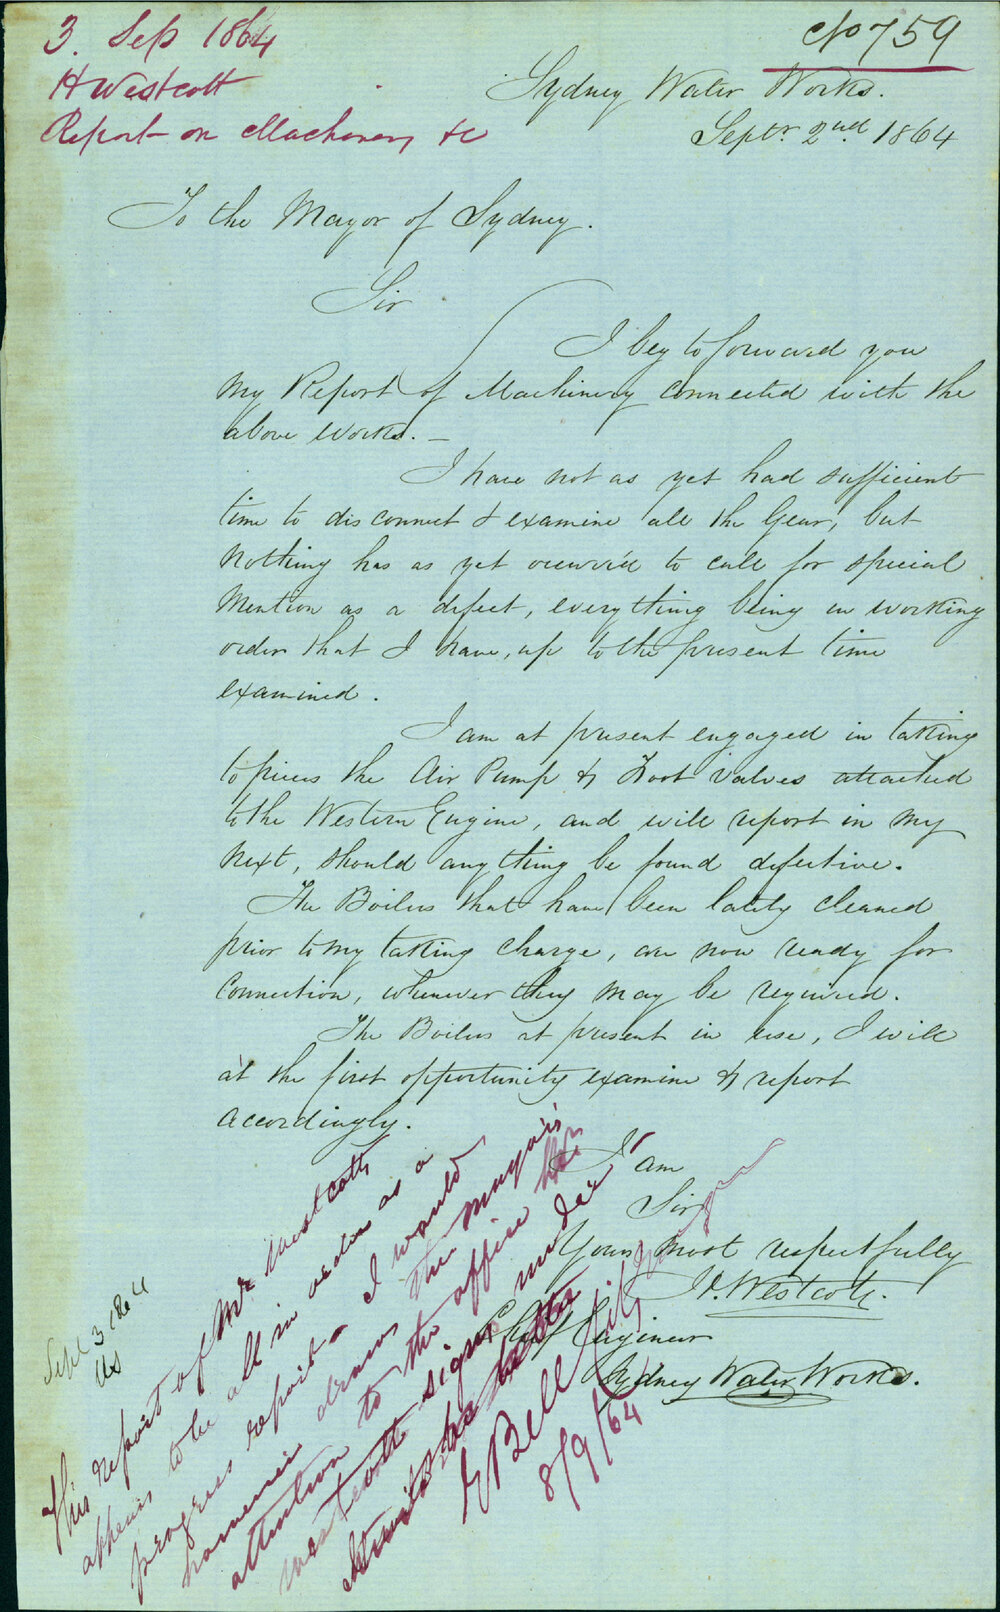 3. Sep 1864
H Westcott
Report on Machinery &c
No 759
Sydney Water Works.
Septr. 2nd 1864
To the Mayor of Sydney.
Sir
I beg to forward you
my Report of Machinery connected with the
above Works. —
I have not as yet had sufficient
time to disconnect & examine all the Gear, but
nothing has as yet occurred to call for special
mention as a defect, everything being in working
order that I have, up to the present time
examined.
I am at present engaged in taking
to pieces the Air Pump & Foot Valves attached
to the Western Engine, and will report in my
next, should anything be found defective.
The Boilers that have been lately cleaned
prior to my taking charge, are now ready for
connection, whenever they may be required.
The Boilers at present in use, I will
at the first opportunity examine & report
accordingly.
I am
Sir
Yours most respectfully
H. Westcott.
Chief Engineer
Sydney Water Works.
Sept 3 1864
This report of Mr Westcott
appears to be all in order as a
progress report - I would
however draw the Mayor's
attention to the office Mr
Westcott signs under
E Bell City Engineer
8/9/64